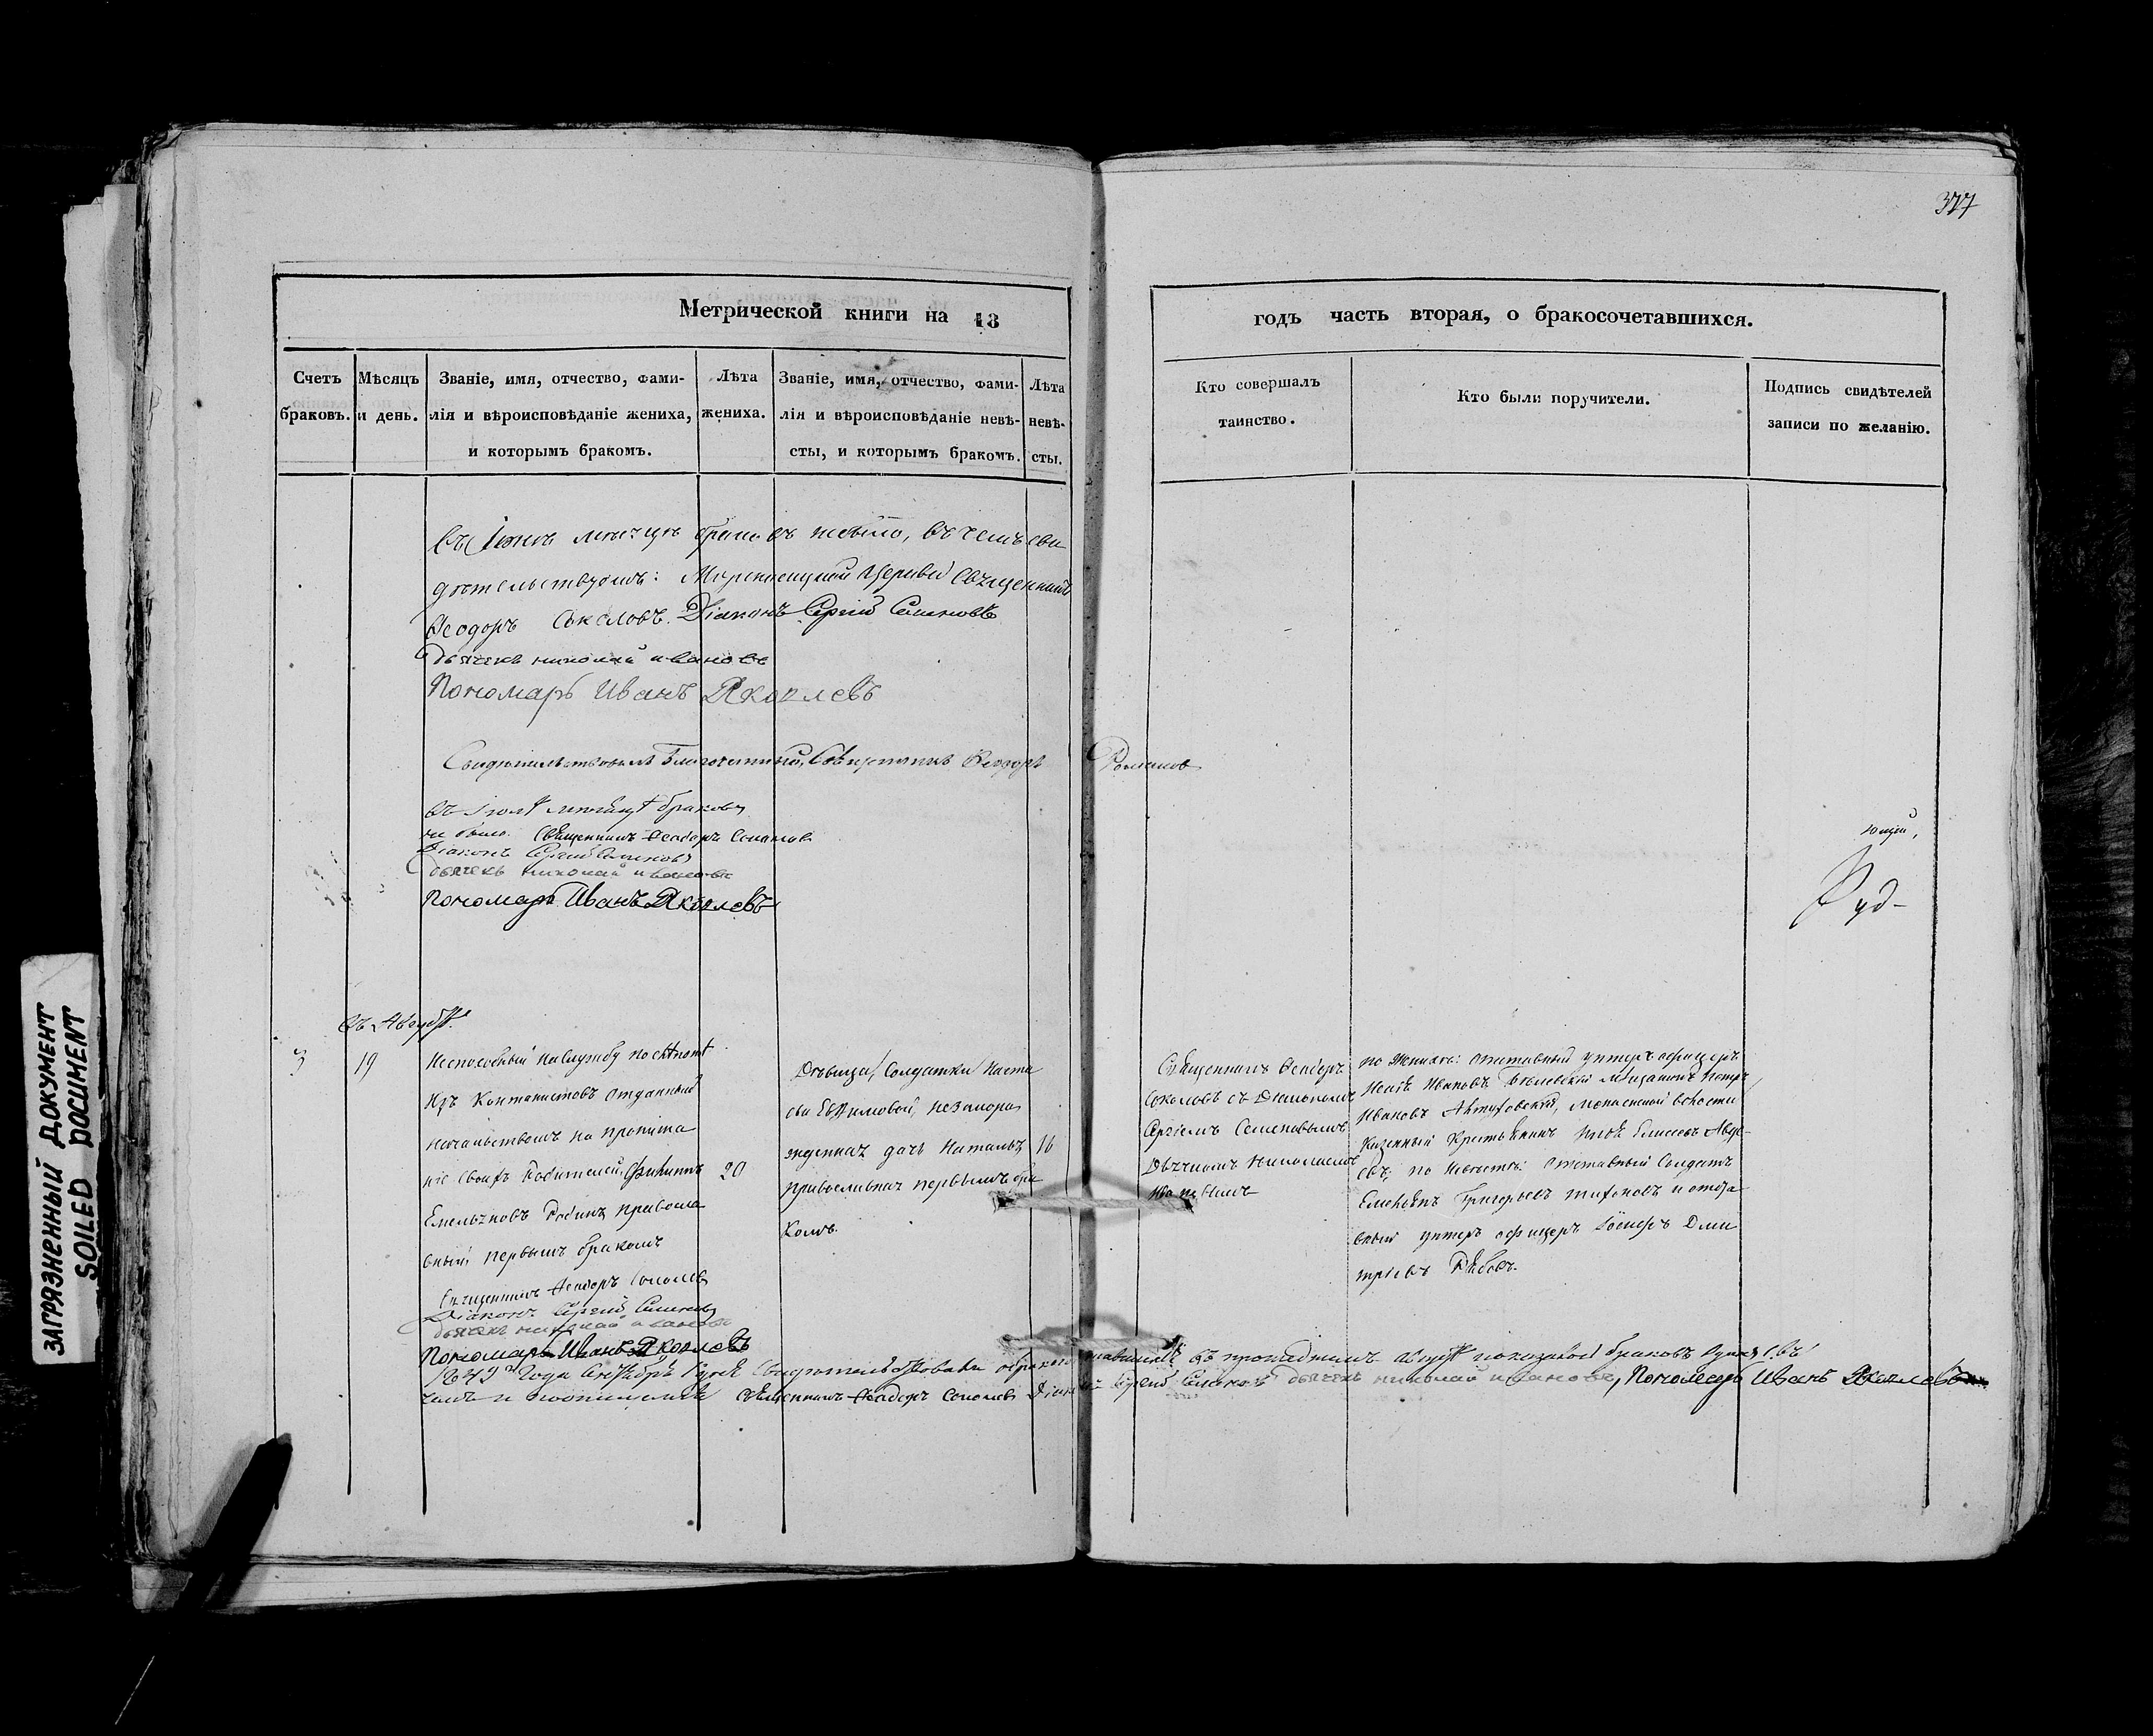 377
Метрической книги на 18
годъ часть вторая, о бракосочетавшихся.
Счетъ браковъ.
Мѣсяцъ и день.
Званіе, имя, отчество, фами-
лія и вѣроисповѣданіе жениха,
и которымъ бракомъ.
Лѣта
жениха.
Званіе, имя, отчество, фами-
лія и вѣроисповѣданіе невѣ-
сты, и которымъ бракомъ.
Лѣта
невѣ-
сты.
Кто совершалъ
таинство.
Кто были поручители.
Подпись свидѣтелей
записи по желанію.
въ Іюнѣ мѣсяцѣ браковъ небыло, въ чемъ сви
дѣтельствуемъ: Церкви Священникъ
Ѳеодоръ Соколовъ. Діаконъ Сергій Семеновъ
дьячекъ николай ивановъ
Пономарь Иванъ Яковлевъ
Свидѣтельствовалъ Благочинный, Священникъ Ѳеодоръ Романовъ
въ Іюлѣ мѣсяцѣ браковъ
не было. Священникъ Ѳеодоръ Соколовъ
Діаконъ Сергій Семеновъ
дьячекъ николай ивановъ
Пономарь Иванъ Яковлевъ
ющій,
Руд-
въ Августѣ.
3
19
Неспособный на службу
Изъ Кантонистовъ отданный
начальствомъ на пропита
ніе своихъ Родителей, Филиппъ
Емельяновъ Родинъ правосла
вный первымъ бракомъ
20
Дѣвица, Солдатки Наста
сьи Евѳимовой, незаконо
жденная дочь Наталья
православная первымъ бра
комъ.
16
Священникъ Ѳеодоръ
Соколовъ съ Діакономъ
Сергіемъ Семеновымъ
Дьячкомъ Николаемъ
Ивановымъ
по Женихѣ: отставный унтеръ офицеръ
Ивановъ Бѣлевскій мѣщанинъ Петръ
Ивановъ волости
Казенный Крестьянинъ Елисеевъ Авде-
евъ; по Невѣстѣ: отставный Солдатъ
Григорьевъ Тихоновъ и отста
вный унтеръ офицеръ Іосифъ Дми
тріевъ Рябовъ.
Священникъ Ѳеодоръ Соколовъ
Діаконъ Сергій Семеновъ
дьячекъ николай ивановъ
Пономарь Иванъ Яковлевъ
Года Сентября свидѣтельствовали въ прошедшемъ августѣ браковъ
чемъ и подписуемся Священникъ Ѳеодоръ Соколовъ Діаконъ Сергій Семеновъ дьячекъ николай ивановъ, Пономарь Иванъ Яковлевъ
ЗАГРЯЗНЕННЫЙ ДОКУМЕНТ
SOILED DOCUMENT